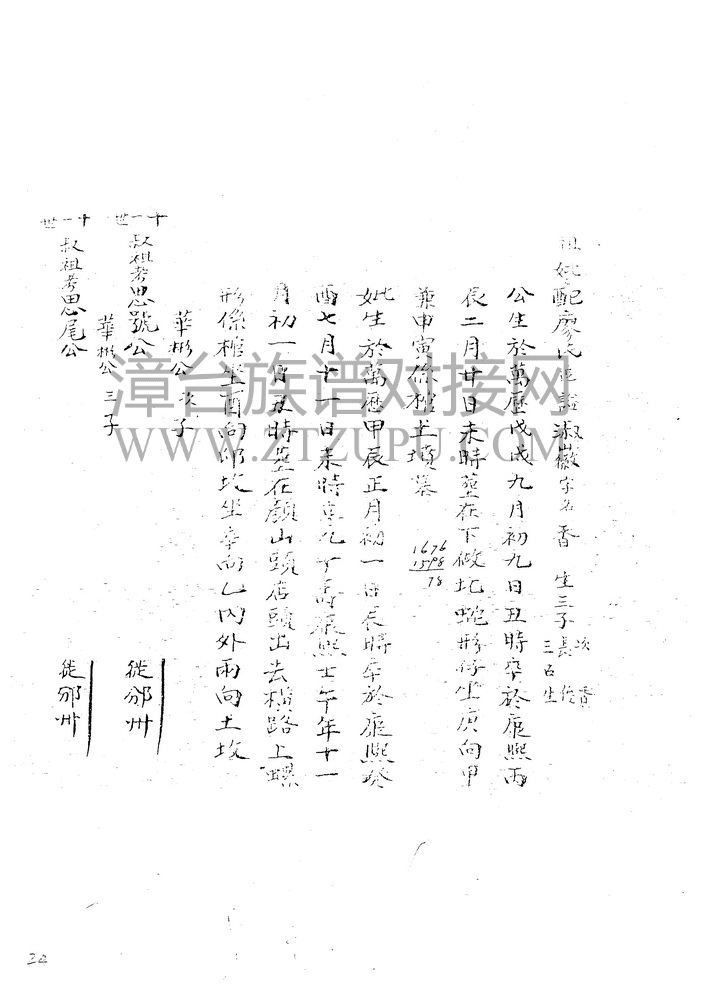 祖妣配廖氏 謚淑徽字名香 生三子 長 次 三
公生於萬歷戊戌九月初九日丑時卒於康熙丙
辰二月廿日未時塟在下 蛇形 坐庚向甲
兼申寅係棺土墳墓
1676
1598
78
妣生於萬歷甲辰正月初一日辰時卒於康熙癸
酉七月十一日未時享九十壽康熙壬午年十一
月初一日丑時塟在顏山頭店頭出去橫路上螺
形係棺坐酉向卯坟坐辛向乙內外兩向土坟
華彬公次子
十一世 叔祖考思號公 徙邠州
華彬公三子
十一世 叔祖考思尾公 徙邠州
漳台族谱对接网
WWW.ZTZUPU.COM
32